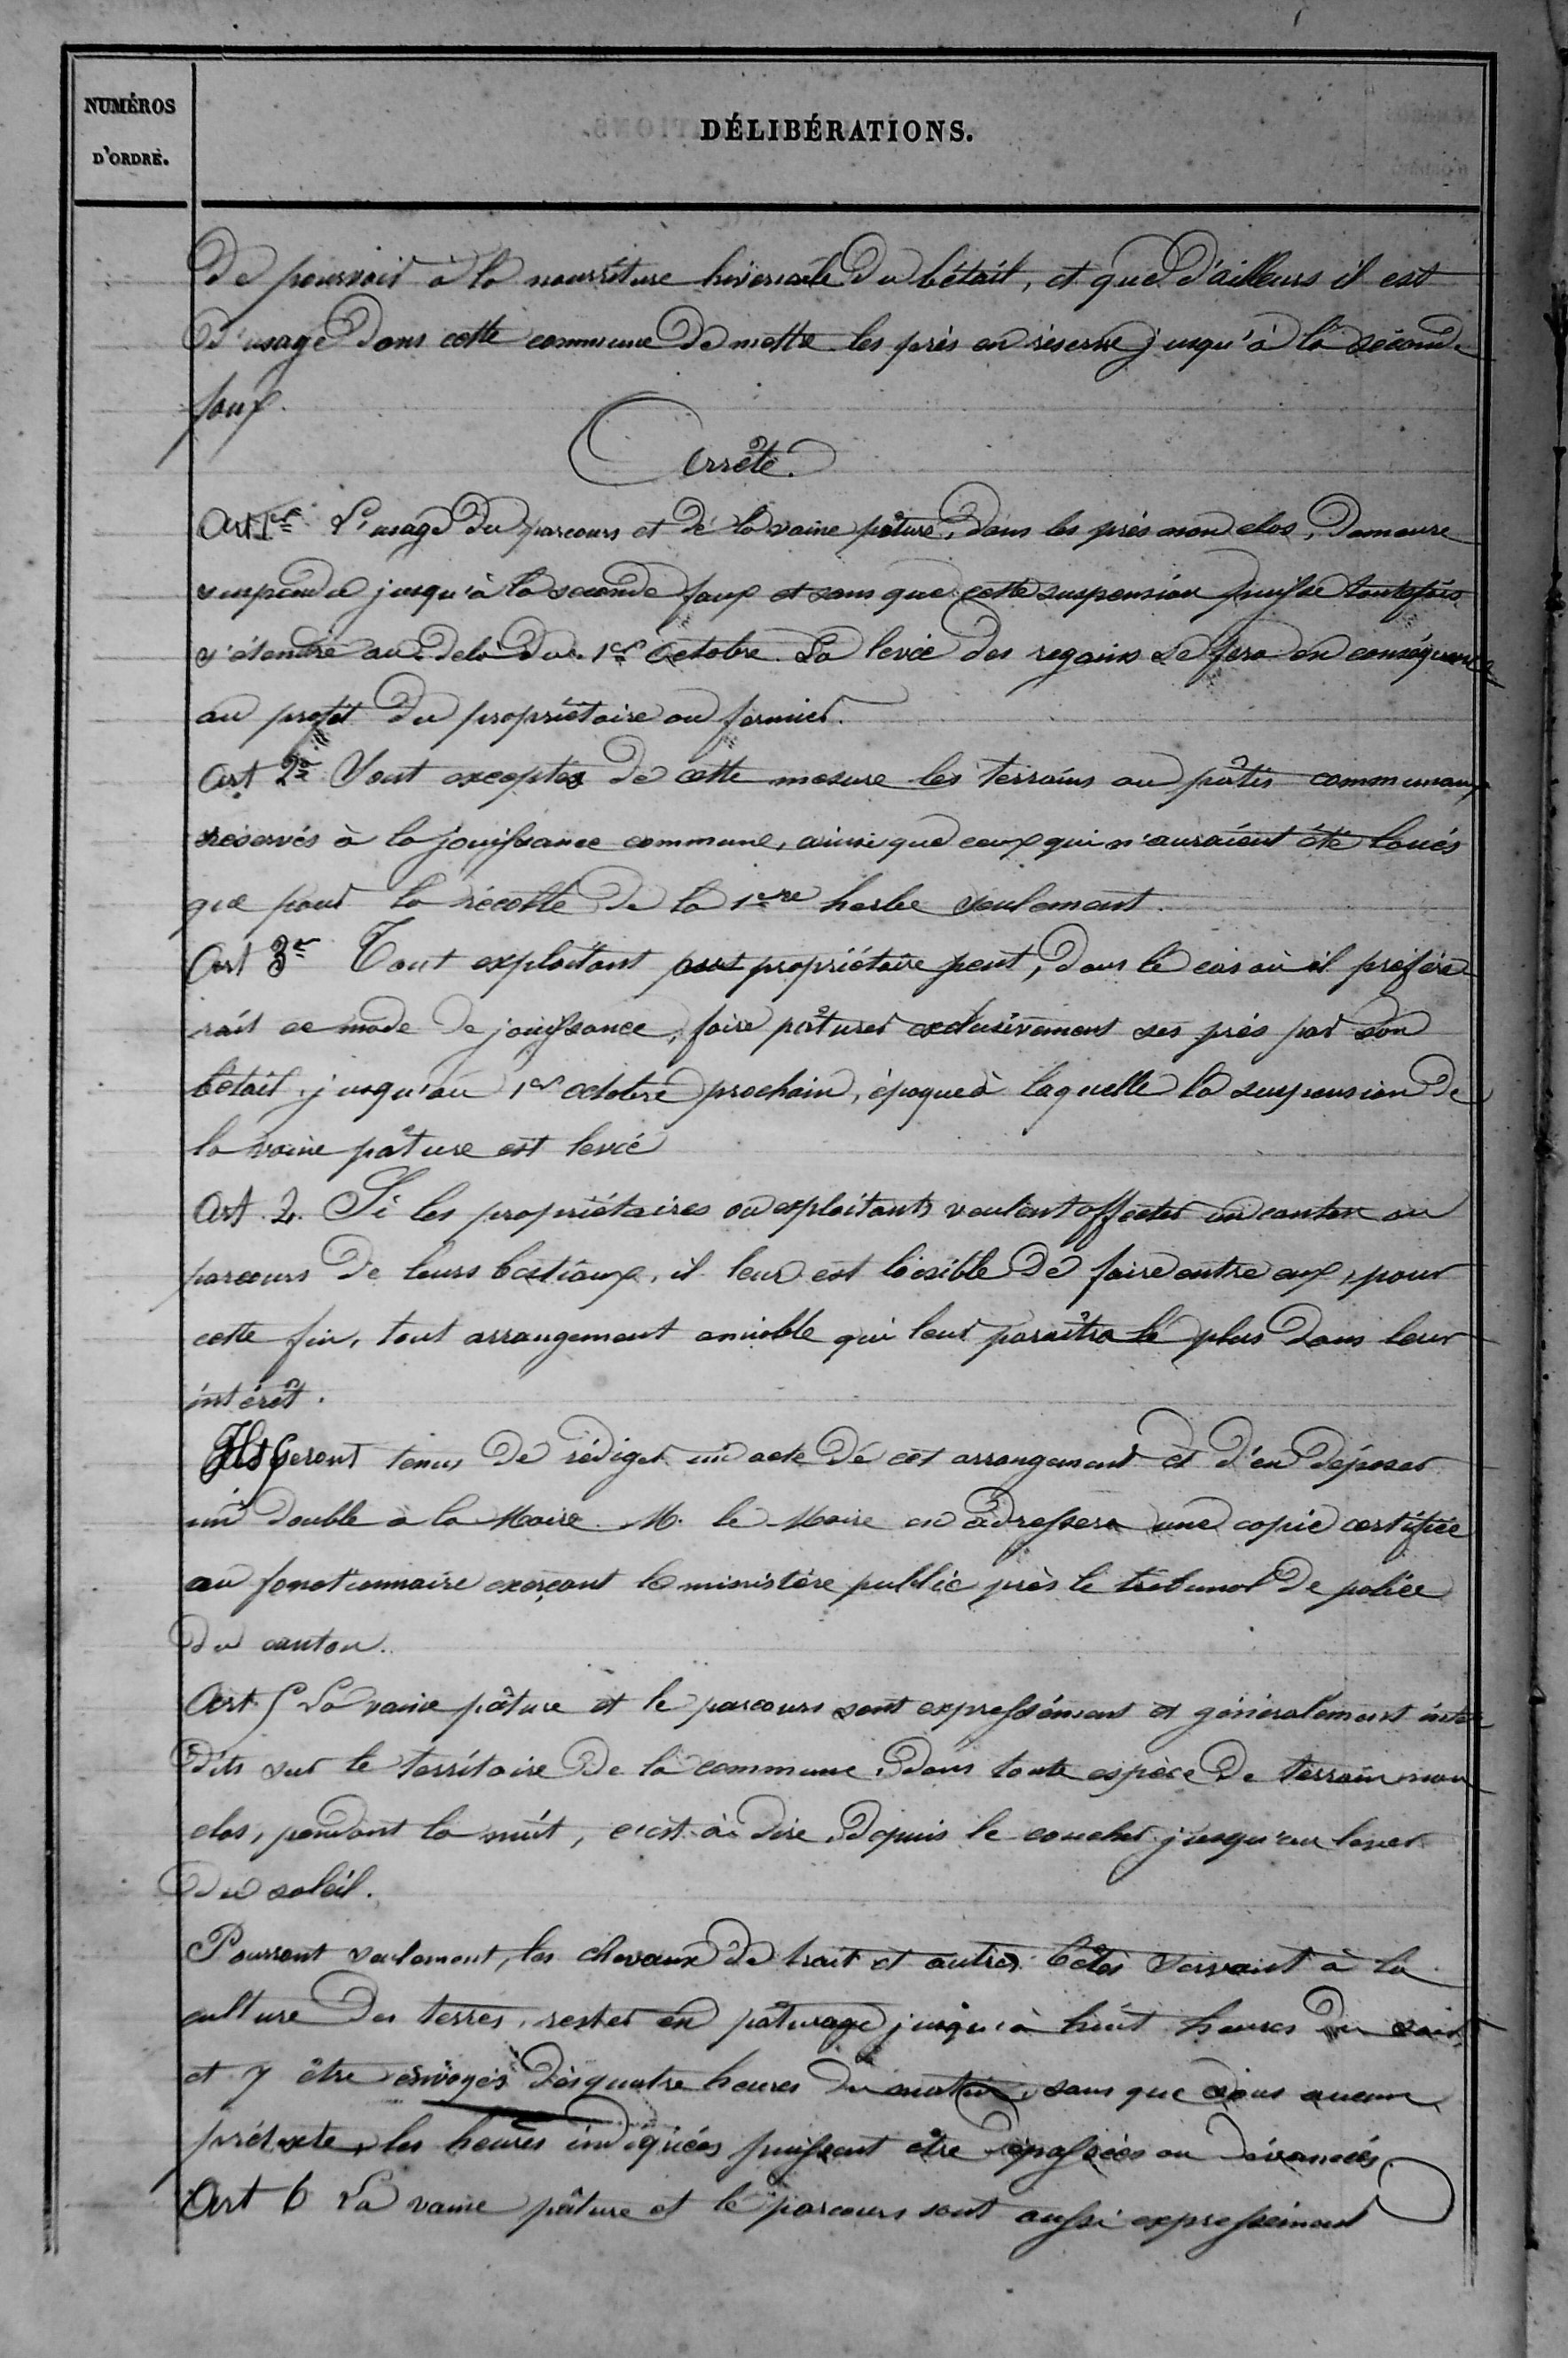 NUMÉROS
D'ORDRE.
DÉLIBÉRATIONS.
de pourvoir à la nourriture hivernale du bétail, et que d'ailleurs il est
d'usage dans cette commune de mettre les prés en réserve jusqu'à la seconde
faux.
Arrête.
Art 1er L'usage du parcours et de la vaine pâture, dans les prés non clos, demeure
suspendu jusqu'à la seconde faux et sans que cette suspension puisse toutefois
s'étendre au delà du 1er Octobre. La levée des regains se fera en conséquence
au profit du propriétaire ou fermier.
Art 2e Sont exceptés de cette mesure les terrains ou pâtis communaux
réservés à la jouissance commune, ainsi que ceux qui n'auraient été loués
que pour la récolte de la 1ere herbe seulement.
Art 3e Tout exploitant propriétaire peut, dans le cas où il préfère
rait ce mode de jouissance, faire pâturer exclusivement ses prés par son
bétail, jusqu'au 1er octobre prochain, époque à laquelle la suspension de
la vaine pâture est levée
Art. 4. Si les propriétaires ou exploitants veulent affecter un canton au
parcours de leurs bestiaux, il leur est loisible de faire entre eux, pour
cette fin, tout arrangement amiable qui leur paraîtra le plus dans leur
intérêt.
Ils seront tenus de rédiger un acte de cet arrangement et d'en déposer
un double à la Mairie. M. le Maire en adressera une copie certifiée
au fonctionnaire exerçant le ministère public près le tribunal de police
du canton.
Art 5 La vaine pâture et le parcours sont expressément et généralement inter
dits sur le territoire de la commune, dans toute espèce de terrain non
clos, pendant la nuit, c'est à dire, depuis le coucher jusqu'au lever
du soleil.
Pourront seulement, les chevaux de trait et autres bêtes servant à la
culture des terres, rester en pâturage jusqu'à huit heures du soir,
et y être envoyés dès quatre heures du matin, sans que sous aucun
prétexte, les heures indiquées puissent être dépassées ou devancées.
Art 6 La vaine pâture et le parcours sont aussi expressément